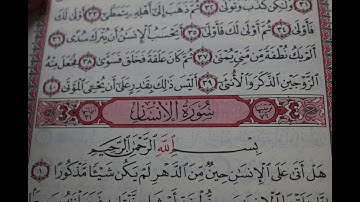 ٣١ وَلَٰكِن كَذَّبَ وَتَوَلَّىٰ ٣٢ ثُمَّ ذَهَبَ إِلَىٰٓ أَهْلِهِۦ يَتَمَطَّىٰٓ ٣٣ أَوْلَىٰ لَكَ
فَأَوْلَىٰ ٣٤ ثُمَّ أَوْلَىٰ لَكَ فَأَوْلَىٰٓ ٣٥ أَيَحْسَبُ ٱلْإِنسَٰنُ أَن يُتْرَكَ سُدًى ٣٦
أَلَمْ يَكُ نُطْفَةً مِّن مَّنِىٍّ يُمْنَىٰ ٣٧ ثُمَّ كَانَ عَلَقَةً فَخَلَقَ فَسَوَّىٰ ٣٨ فَجَعَلَ مِنْهُ
ٱلزَّوْجَيْنِ ٱلذَّكَرَ وَٱلْأُنثَىٰٓ ٣٩ أَلَيْسَ ذَٰلِكَ بِقَٰدِرٍ عَلَىٰٓ أَن يُحْۦِىَ ٱلْمَوْتَىٰ ٤٠
سُورَةُ ٱلْإِنسَانِ
بِسْمِ ٱللَّهِ ٱلرَّحْمَٰنِ ٱلرَّحِيمِ
هَلْ أَتَىٰ عَلَى ٱلْإِنسَٰنِ حِينٌ مِّنَ ٱلدَّهْرِ لَمْ يَكُن شَيْـًٔا مَّذْكُورًا ١